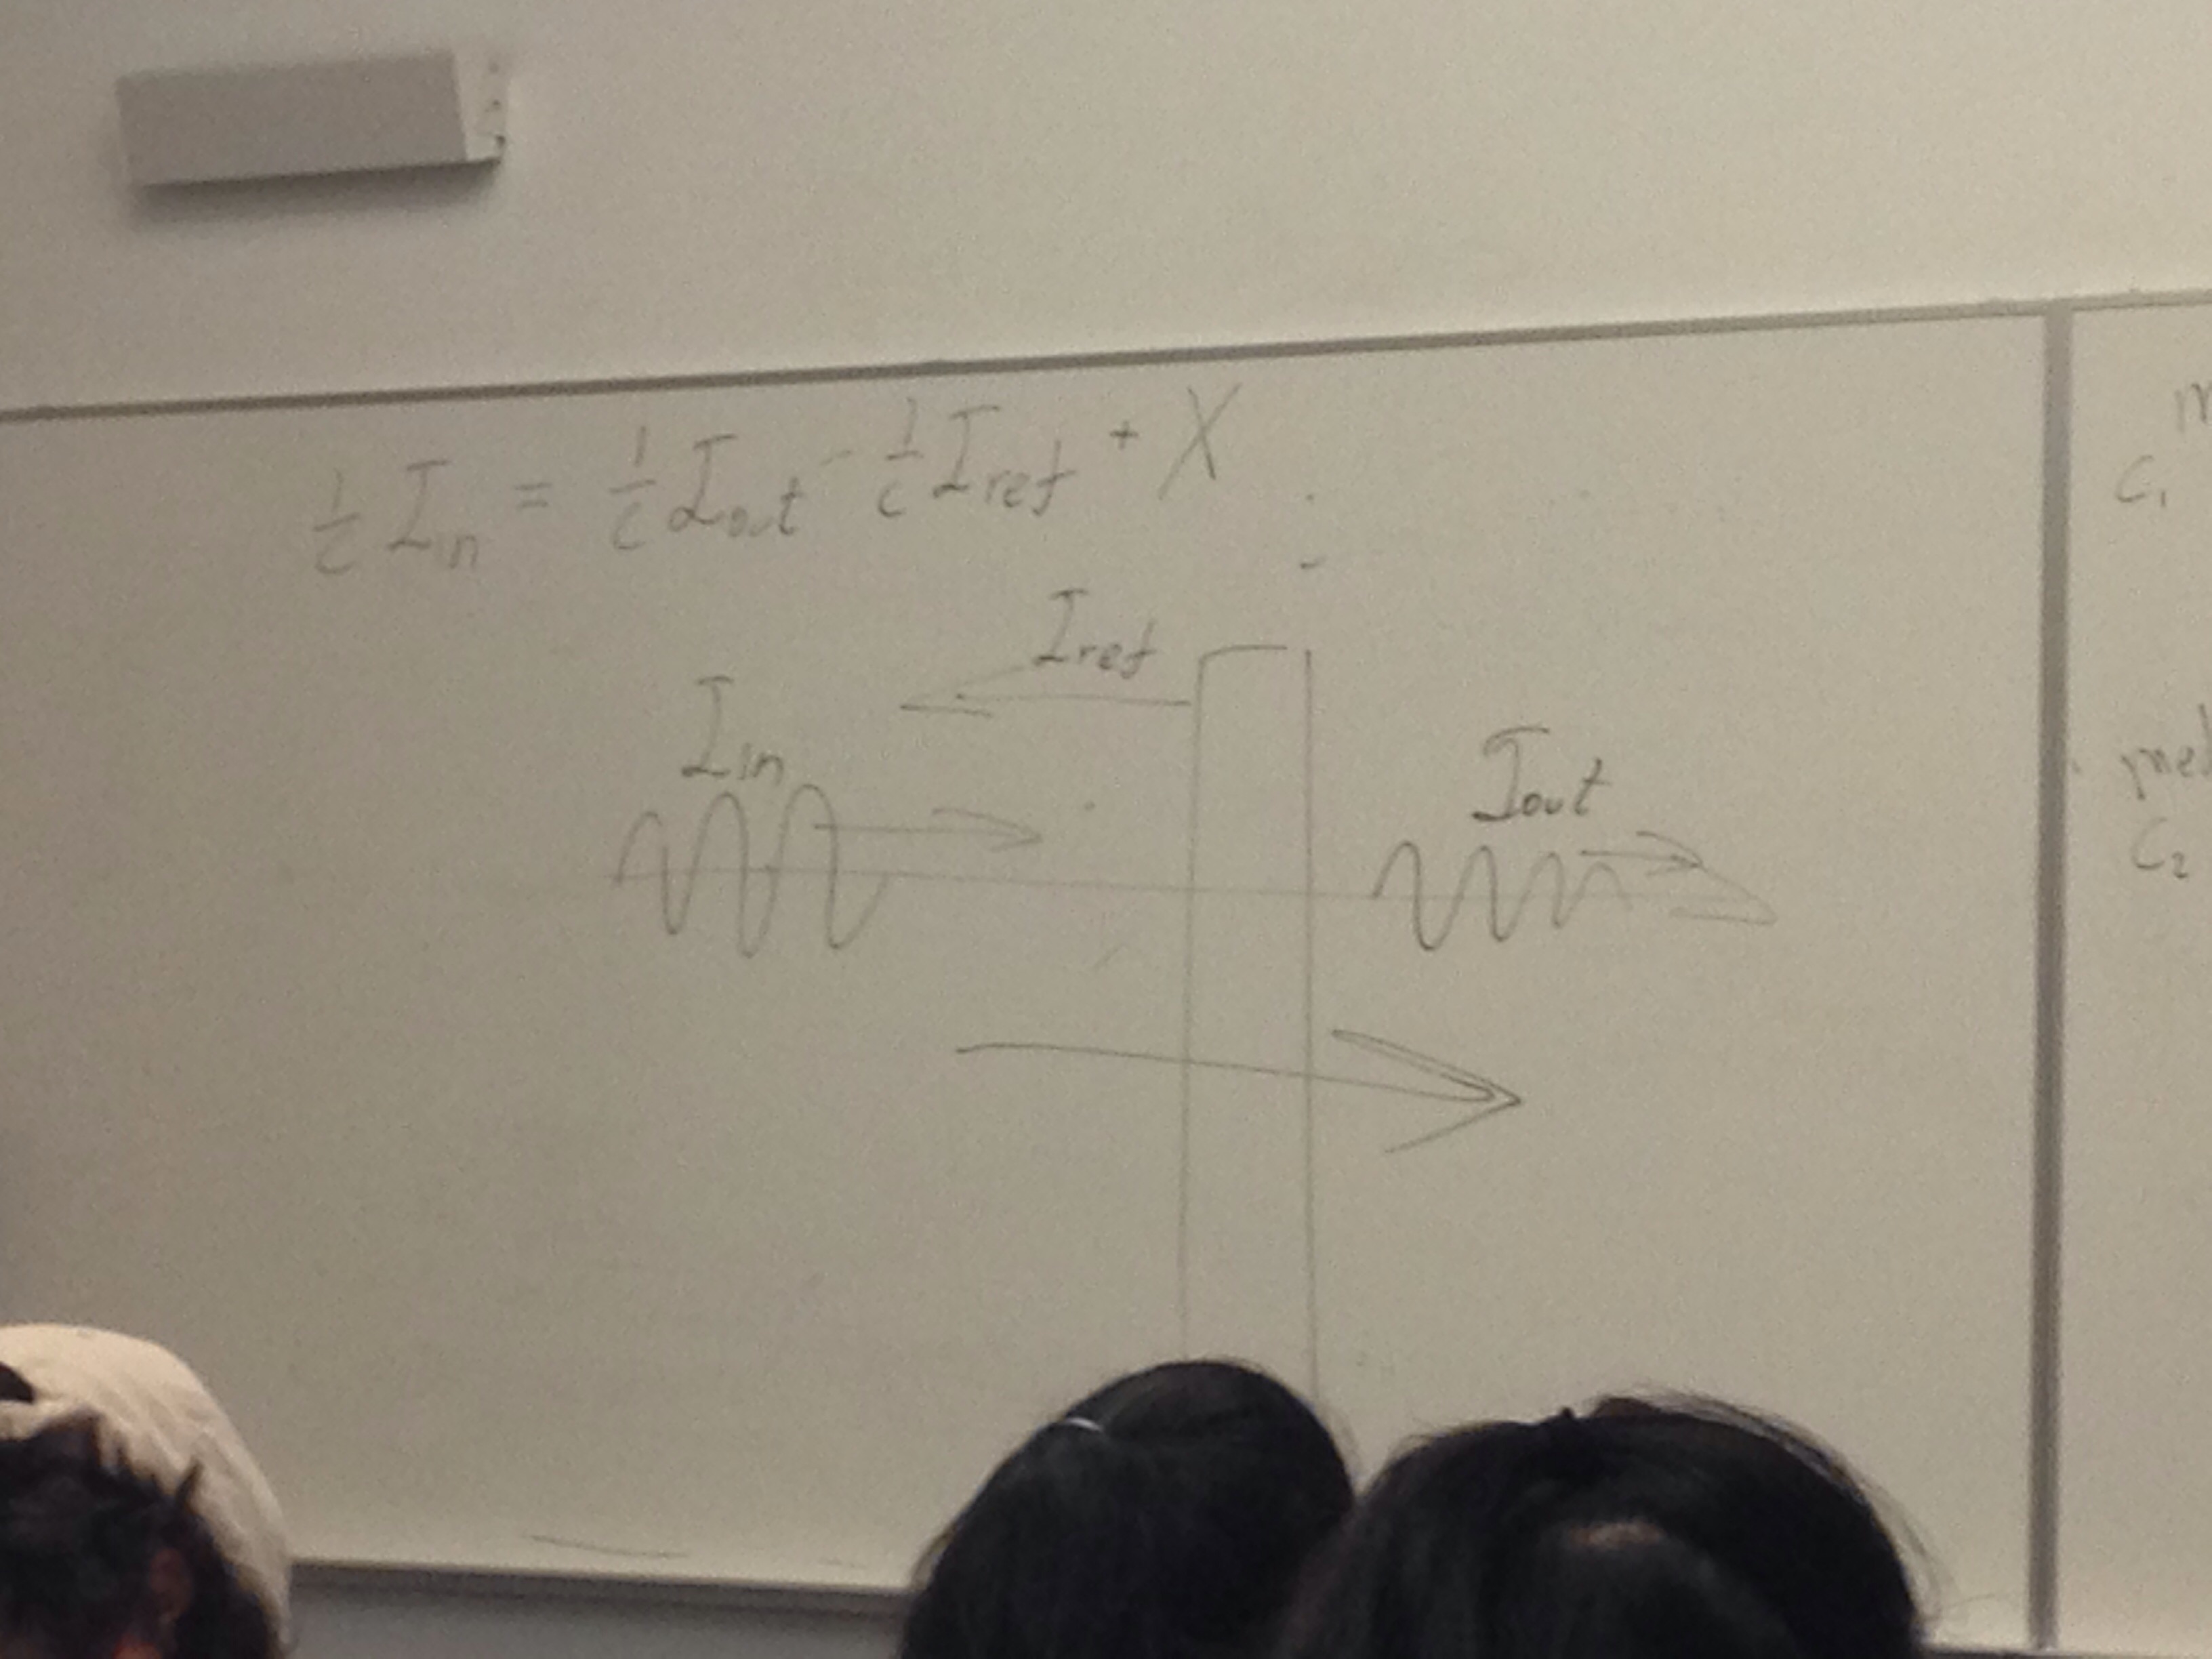 1/c Iin = 1/c Iout - 1/c Iref + X
Iref
Iin
Iout
C₁
C₂